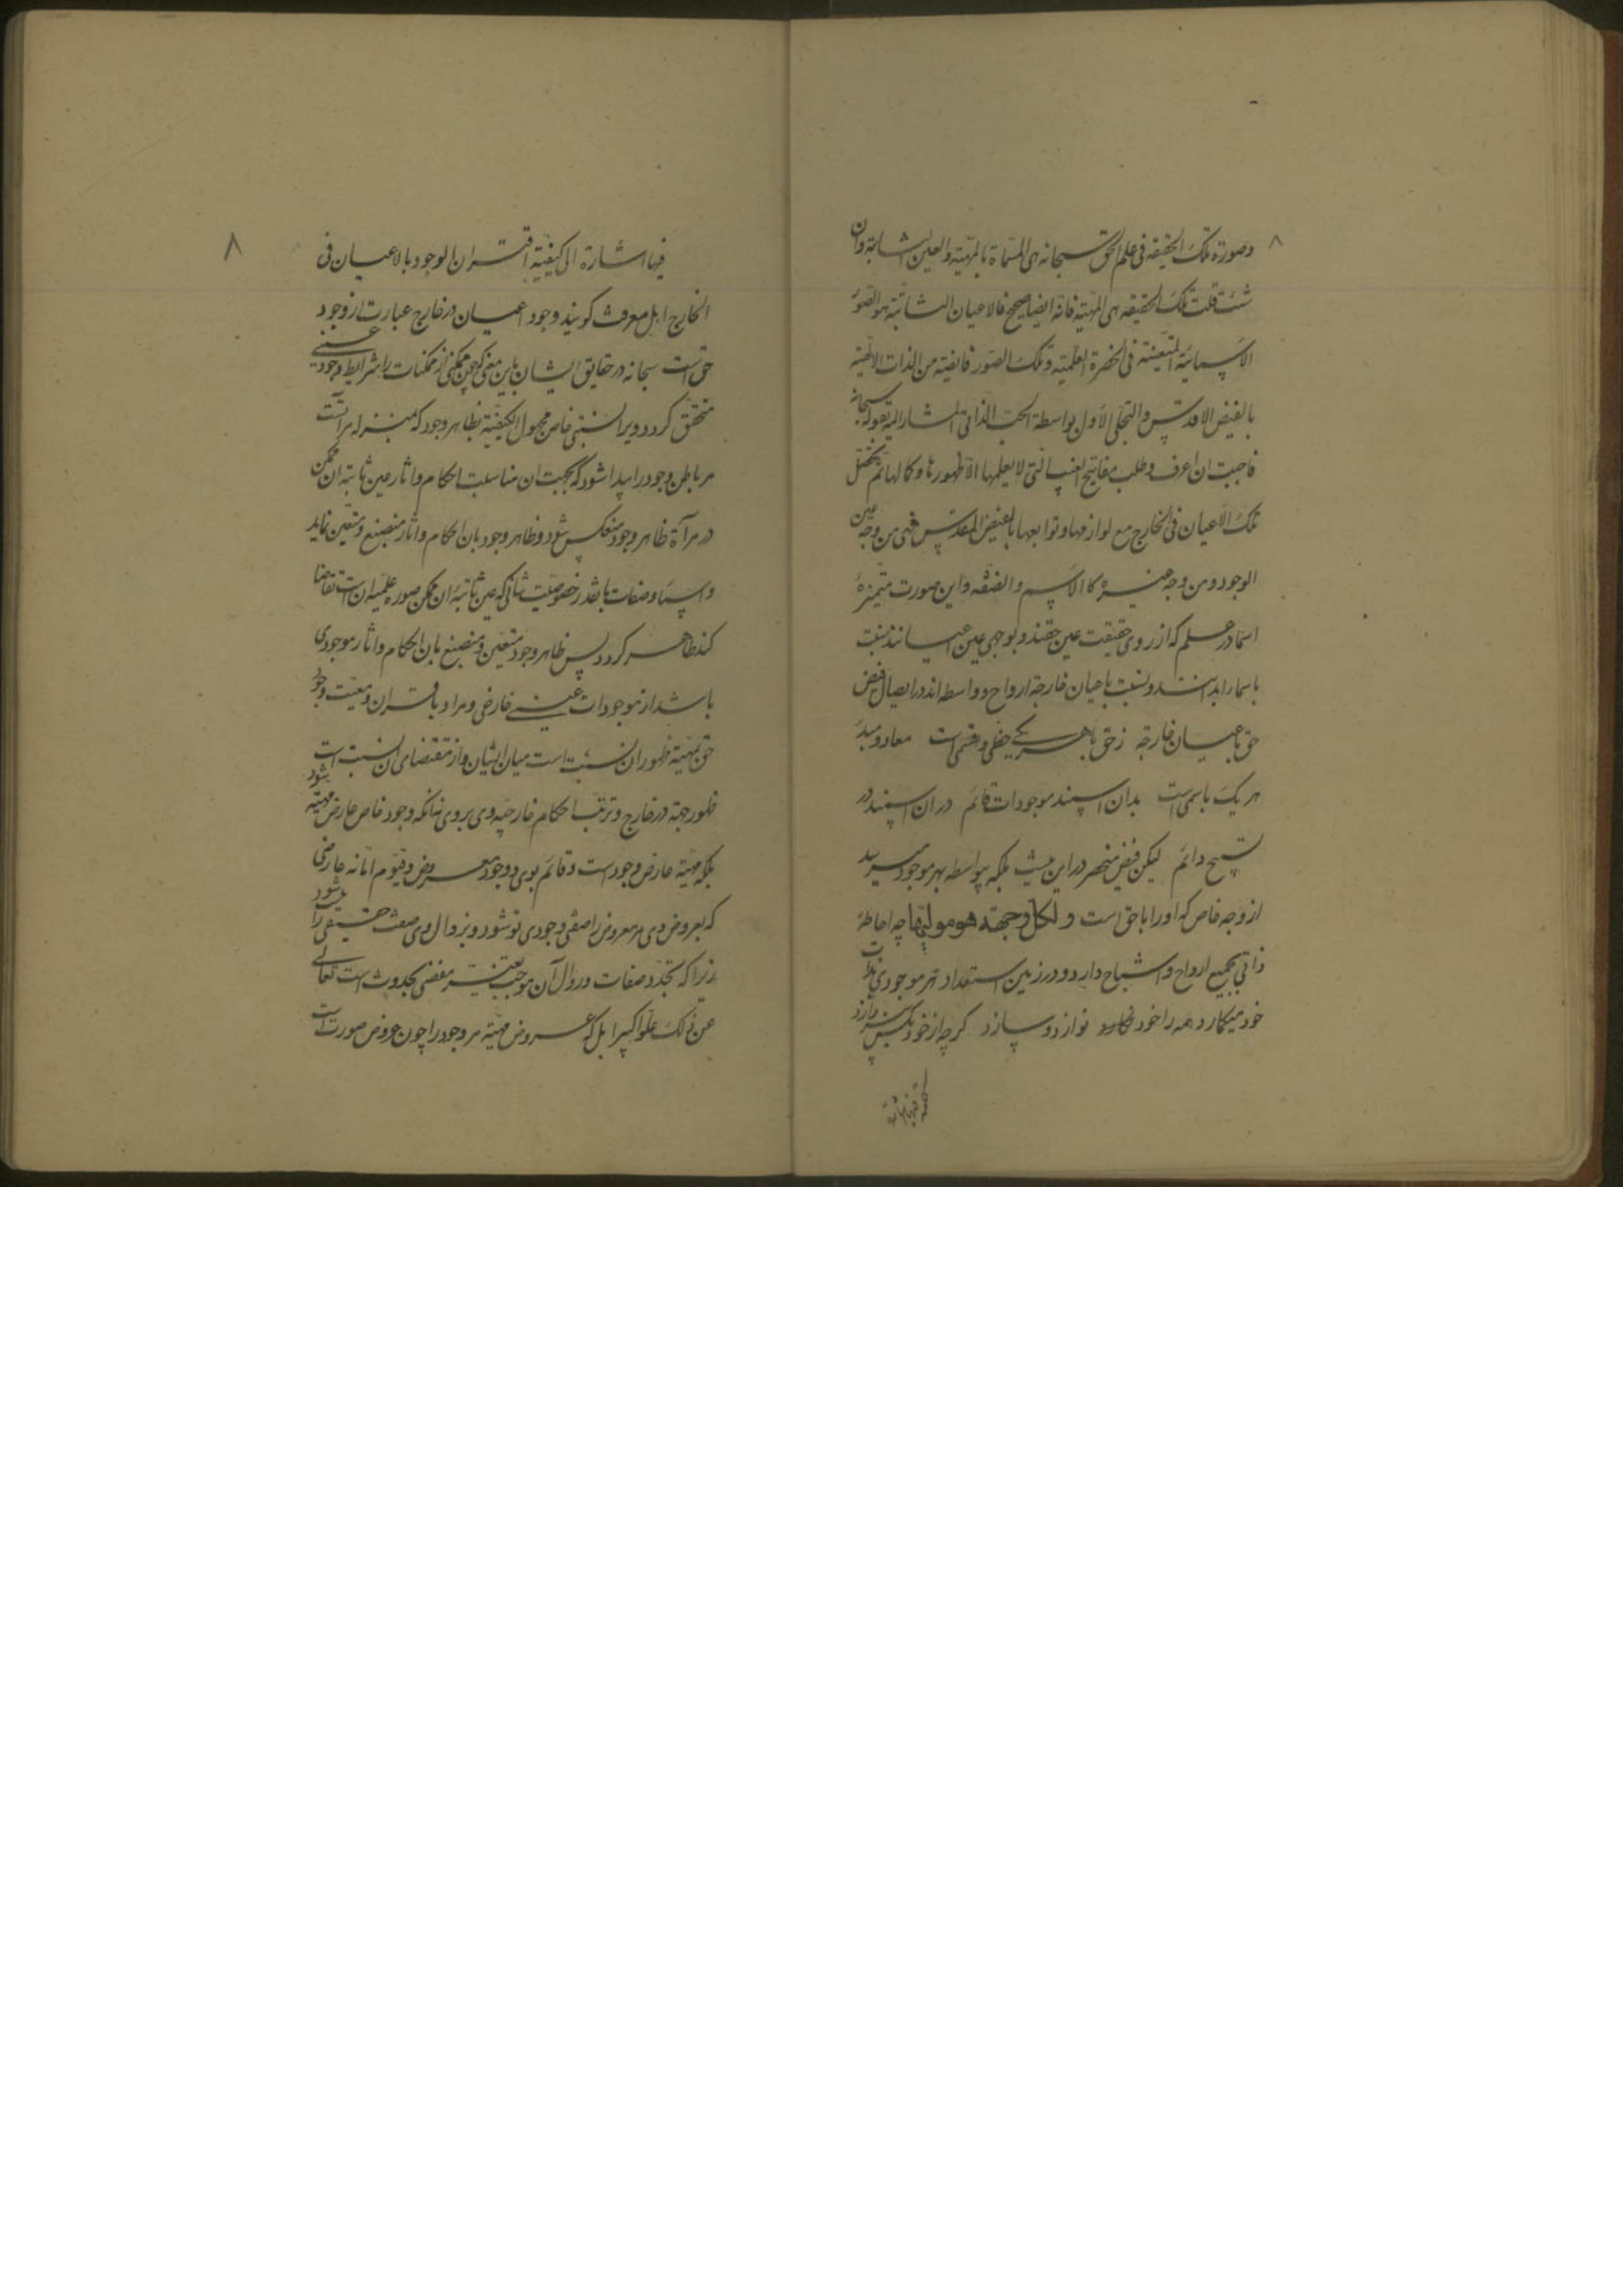 ۸
وصورة تلک الحقیقه فی علم الحق سبحانه هی المسماة بالمهیّة والعین الثابتة وان
شئت قلت تلک الحقیقه هی المهیّة فانه ایضا صحیح فالاعیان الثابتة هو الصور
الاسمائیّة المتعیّنة فی الحضرة العلمیّة وتلک الصّور فایضة من الذات الالهیّة
بالفیض الاقدس والتجلّی الاوّل بواسطة الحبّ الذاتی المشار الیه بقوله سبحانه
فاحببت ان اعرف وطلب مفاتیح الغیب الّتی لا یعلمها الا ظهورها وکمالها ثم تحصّل
تلک الاعیان فی الخارج مع لوازمها وتوابعها بالفیض المقدّس فهی من وجه عین
الوجود ومن وجه غیره کالاسم والصّفه واین صورت متمیّزهٔ
اسما در علم که از روی حقیقت عین حقند و بوجهی عین اعیانند نسبت
باسما ابدانند و نسبت باعیان خارجه ارواح و واسطه اند در ایصال فیض
حق باعیان خارجه زحق با هر یکی حظّی و قسمی است معاد و مبدَ
هر یک باسمی است بدان اسمند موجودات قائم در ان اسمند در
تسبیح دائم لیکن فیض منحصر در این نیست بلکه بیواسطه بهر موجود میرسد
از وجه خاص که اورا با حق است و لکل وجهة هو مولیّها چه احاطهٔ
ذاتی بجمیع ارواح و اشباح دارد و در زمین استعداد هر موجودی بذات
خود میکارد همه را خود نوازد و سازد گرچه از خود بکس نپردازد
۸
فیها اشارة الی کیفیّة اقتران الوجود بالاعیان فی
الخارج اهل معرفت گویند وجود اعیان در خارج عبارت از وجود
حق است سبحانه در حقایق ایشان باین معنی که چون ممکنی از ممکنات را شرایط وجود عینی
متحقّق گردد ویرا نسبتی خاص مجهول الکیفیّة بظاهر وجود که بمنزله مرآتست
مر باطن وجود را پیدا شود که بجهت ان مناسبت احکام و اثار عین ثابته ان ممکن
در مرآة ظاهر وجود منعکس شود و ظاهر وجود بان احکام و اثار منصبغ و متعیّن نماید
و اسما و صفات بقدر خصوصیّت شانی که عین ثابتهٔ ان ممکن صوره علمیّه ان است تقاضا
کند ظاهر گردد پس ظاهر وجود متعیّن و منصبغ بان احکام و اثار موجودی
باشد از موجودات عینی خارجی و مراد باقتران و معیّت وجود
حق بمهیّة ظهور ان نسبت است میان ایشان و از مقتضای ان نسبت است
ظهور مهیة در خارج و ترتّب احکام خارجیّه وی بر وی نه انکه وجود خاص عارض مهیّه شود
بلکه مهیّة عارض وجود است و قائم بوی و وجود معروض و قیّوم امّا نه عارضی
که بعروض وی مر معروض را صفتی وجودی نو شود و بزوال وی صفت حقیقی زایل شود
زیرا که تجدّد صفات و زوال آن موجب تغیّر مفضی بحدوث است تعالی
عن ذلک علوّا کبیرا بل که عروض مهیّة مر وجود را چون عروض صورت است